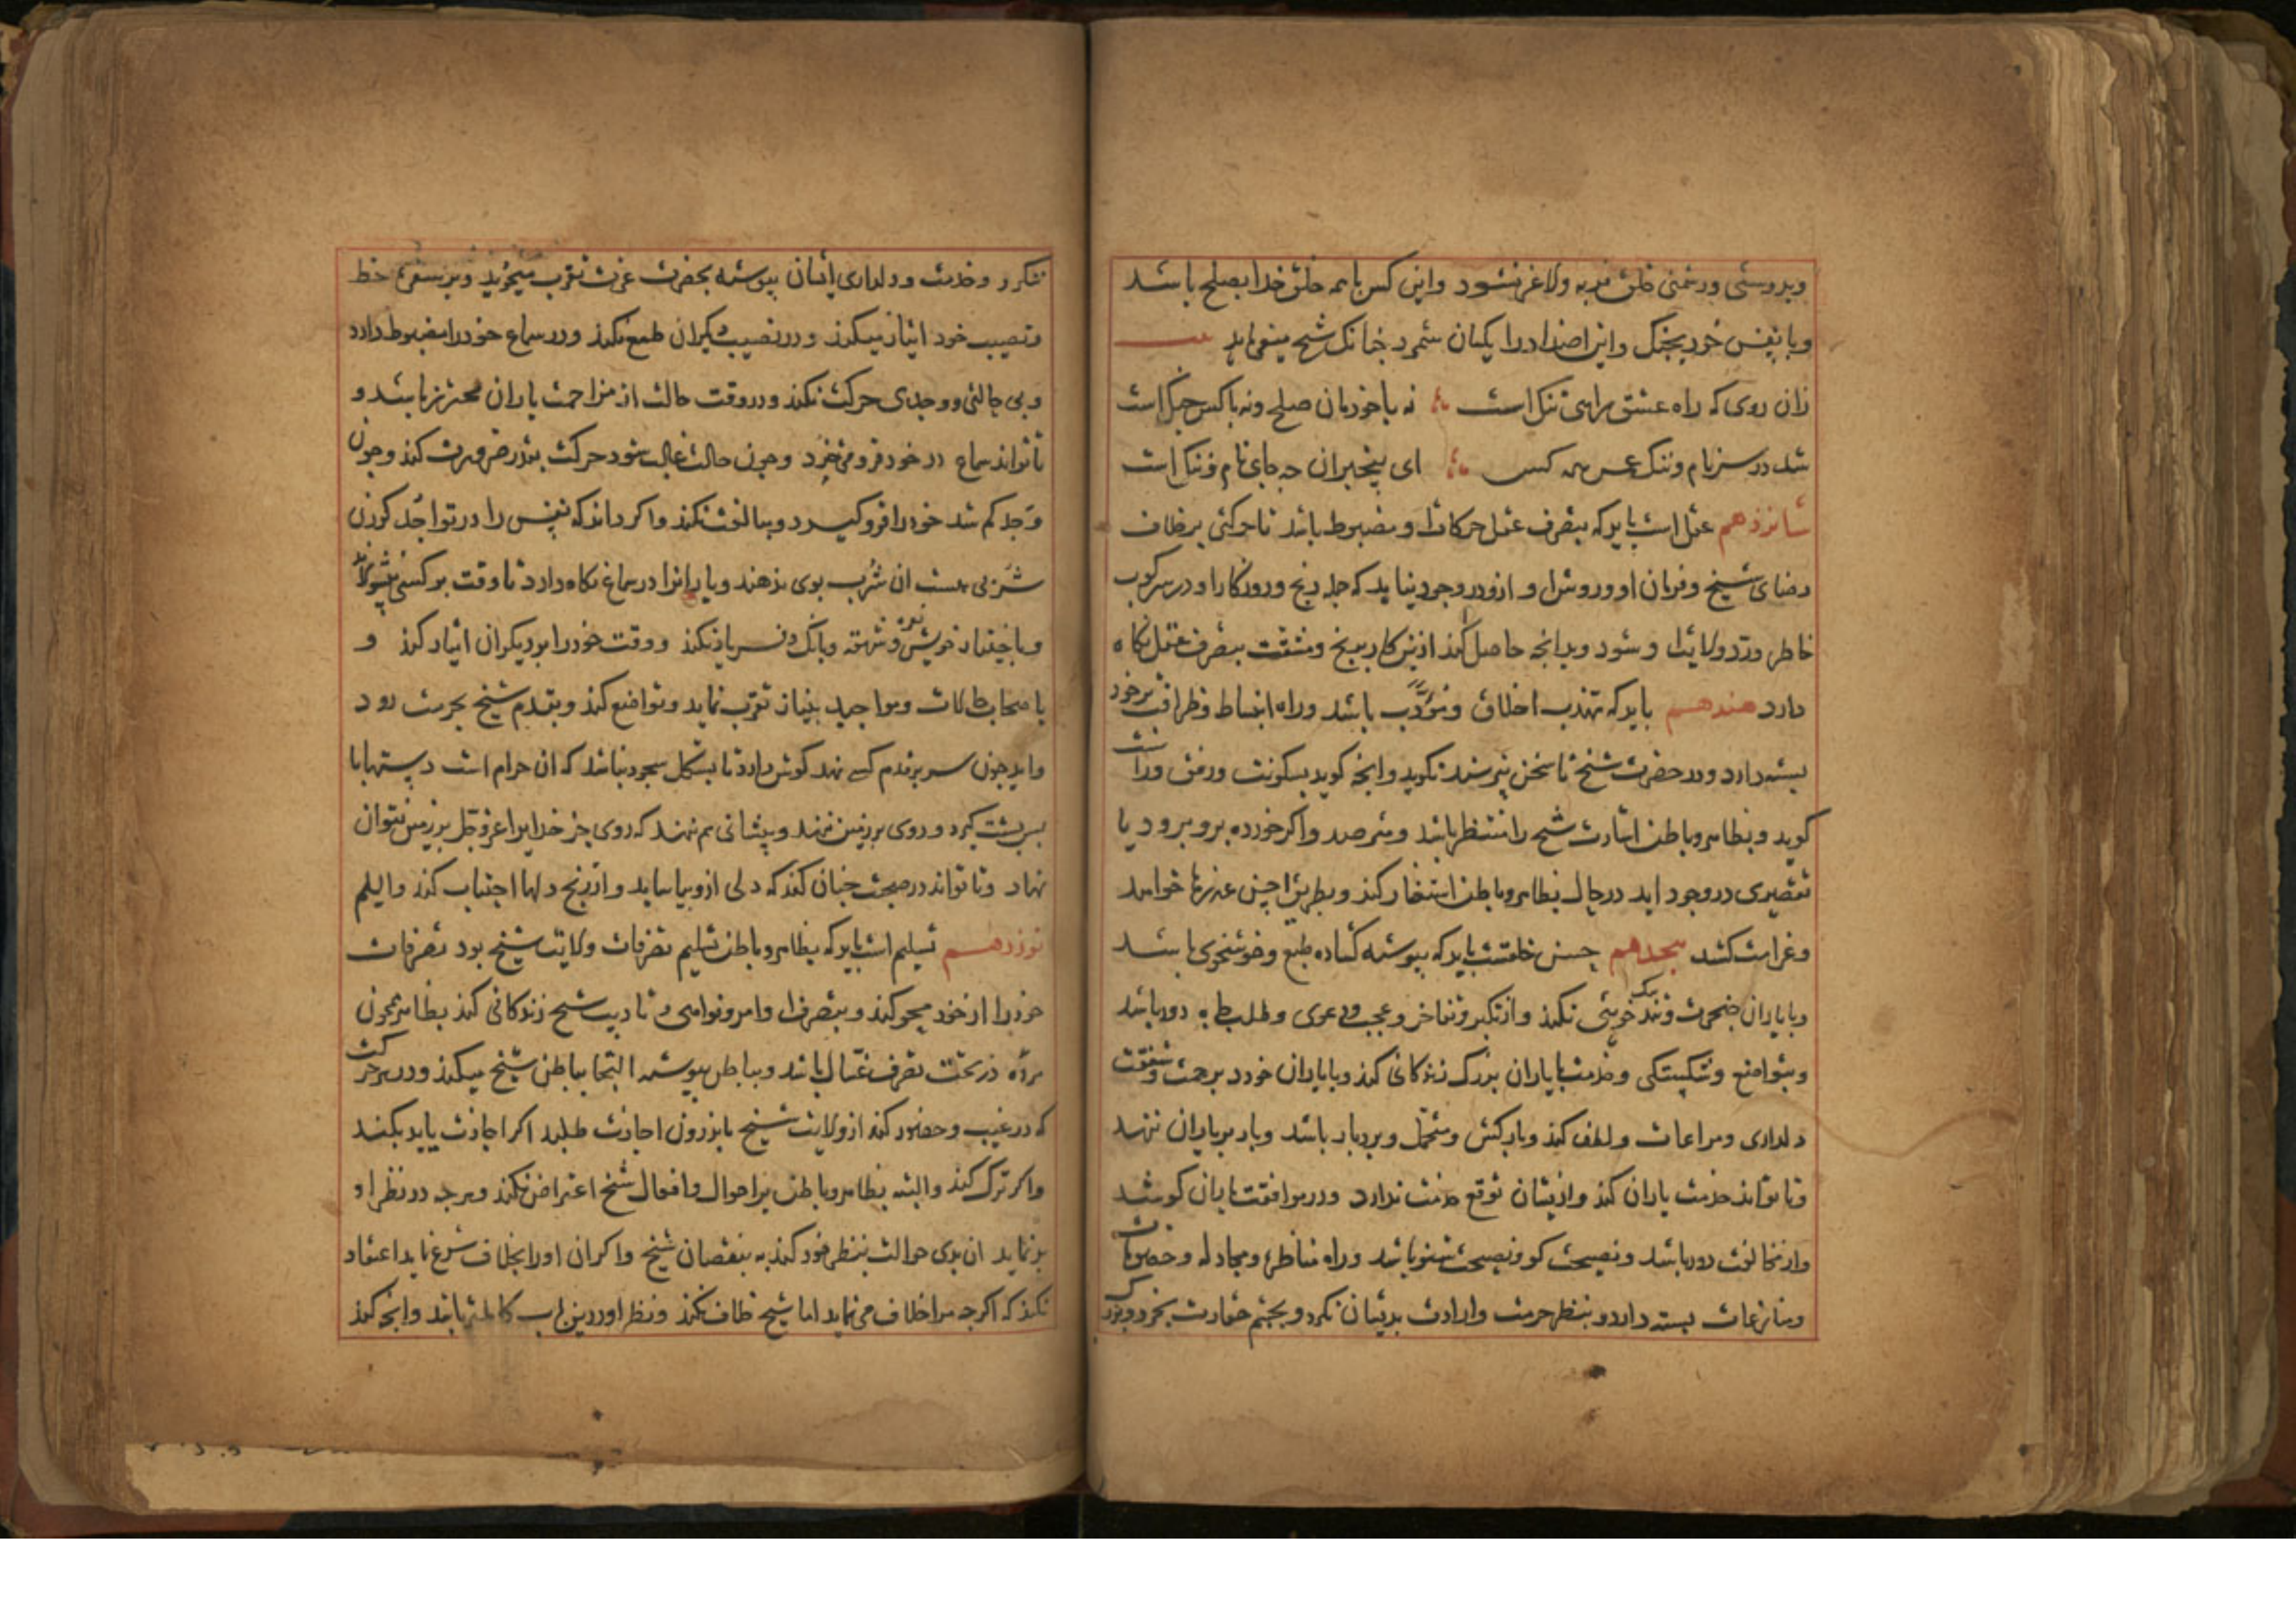 وبدوستی ودشمنی خلق فربه ولاغر نشود واین کس با همه خلق خدا بصلح باشد
وبا نفس خود بجنک واین اضداد را یکسان شمرد چنانک شیخ میفرماید
زان روی که راه عشق راهی تنک است نه با خودمان صلح ونه با کس جنک است
شد در سر نام وننک عمر همه کس ای بیخبران چه جای نام وننک است
شانزدهم عقل است باید که بتصرف عقل حرکات او مضبوط باشد تا حرکتی برخلاف
رضای شیخ وفرمان او وروش او ازو در وجود نیاید که جمله رنج وروزکار او در سر کوب
خاطر ورد ولایت او شود وبدانچه حاصل کند ازین کار برنج ومشقت بتصرف عقل نکاه
دارد هفدهم باید که تهذب اخلاق ومؤدب باشد وراه انبساط وظرافت برخود
بسته دارد ودر حضرت شیخ تا سخن نپرسند نکوید وانچه کوید بسکونت ورفق وراست
کوید وبظاهر وباطن اشارت شیخ را منتظر باشد ومترصد واکر خورده برو برود یا
تقصیری در وجود اید در حال بظاهر وباطن استغفار کند وبطریق احسن عذرها خواهد
وغرامت کشد هجدهم حسن خلقست باید که پیوسته کشاده طبع وخوشخوی باشد
وبا یاران ضجرت وتنک خویی نکند واز تکبر وتفاخر وعجب ودعوی وطلب جاه دور باشد
وبتواضع وشکستکی وخدمت با یاران بزرک زندکانی کند وبا یاران خورد برحمت وشفقت
دلداری ومراعات ولطف کند وبارکش ومتحمل وبردبار باشد وبار بر یاران ننهد
وتا تواند خدمت یاران کند وازیشان توقع خدمت ندارد ودر موافقت یاران کوشد
واز مخالفت دور باشد ونصیحت کو ونصیحت شنو باشد وراه مناظره ومجادله وخصومات
ومنازعات بسته دارد وبنظر حرمت وارادت بدیشان نکرد وبچشم حقارت بخرد وبزرک
ننکرد وخدمت ودلداری ایشان پیوسته بحضرت عزت تقرب میجوید وبر سفره حظ
ونصیب خود ایثار میکند ودر نصیب دیکران طمع نکند ودر سماع خود را مضبوط دارد
وبی حالتی ووجدی حرکت نکند ودر وقت حالت از مزاحمت یاران محترز باشد و
تا تواند سماع در خود فرو میخورد وچون حالت غالب شود حرکت بقدر ضرورت کند وچون
وجد کم شد خود را فرو کیرد ومبالغت نکند واکر داند که نفس را در تواجد کردن
شربی هست ان شرب بوی ندهند ویارانرا در سماع نکاه دارد تا وقت بر کسی نشولاند
وباختیار خویش نعره وشهقه وبانک وفریاد نکند ووقت خود را بر دیکران ایثار کند و
باصحاب حالات ومواجید بنیاز تقرب نماید وتواضع کند وبقدم شیخ بحرمت رود
واید چون سر بر قدم کسی نهد کوش دارد تا بشکل سجود نباشد که ان حرام است دستها با
پس پشت کیرد وروی بر زمین ننهد وپیشانی هم ننهد که روی جز خدایرا عزوجل بر زمین نتوان
نهاد وتا تواند در صحبت چنان کند که دلی ازو بیاساید واز رنج دلها اجتناب کند والسلم
نوزدهم تسلیم است باید که بظاهر وباطن تسلیم تصرفات ولایت شیخ بود تصرفات
خود را از خود محو کند وبتصرف اوامر ونواهی وتادیب شیخ زندکانی کند بظاهر همچون
مرده در تحت تصرف غسال باشد وبباطن پیوسته التجا بباطن شیخ میکند ودر هر حرکت
که در غیبت وحضور کند از ولایت شیخ باندرون اجازت طلبد اکر اجازت یابد بکند
واکر نه ترک کند والبته بظاهر وباطن بر احوال وافعال شیخ اعتراض نکند وهرچه در نظر او
بد نماید ان بدی حوالت بنظر خود کند نه بنقصان شیخ واکر ان او را بخلاف شرع نماید اعتقاد
نکند که اکرچه مرا خلاف می نماید اما شیخ خلاف نکند ونظر او درین باب کاملتر باشد وانچه کند